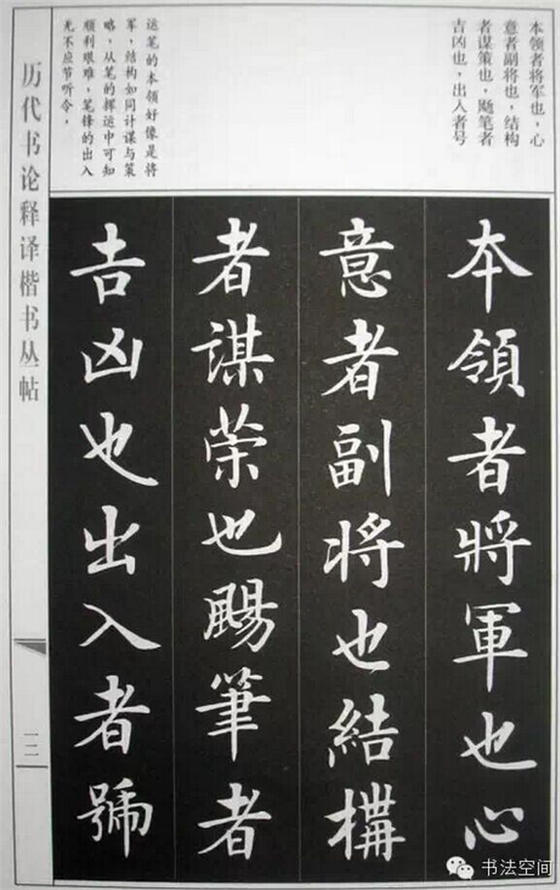 本领者将军也，心
意者副将也，结构
者谋策也，飏笔者
吉凶也，出入者号
运笔的本领好像是将
军，结构如同计谋与策
略，从笔的挥运中可知
顺利艰难，笔锋的出入
无不应节听令。
本領者將軍也心
意者副将也結構
者謀策也颺筆者
吉凶也出入者號
历代书论释译楷书丛帖
一二
书法空间